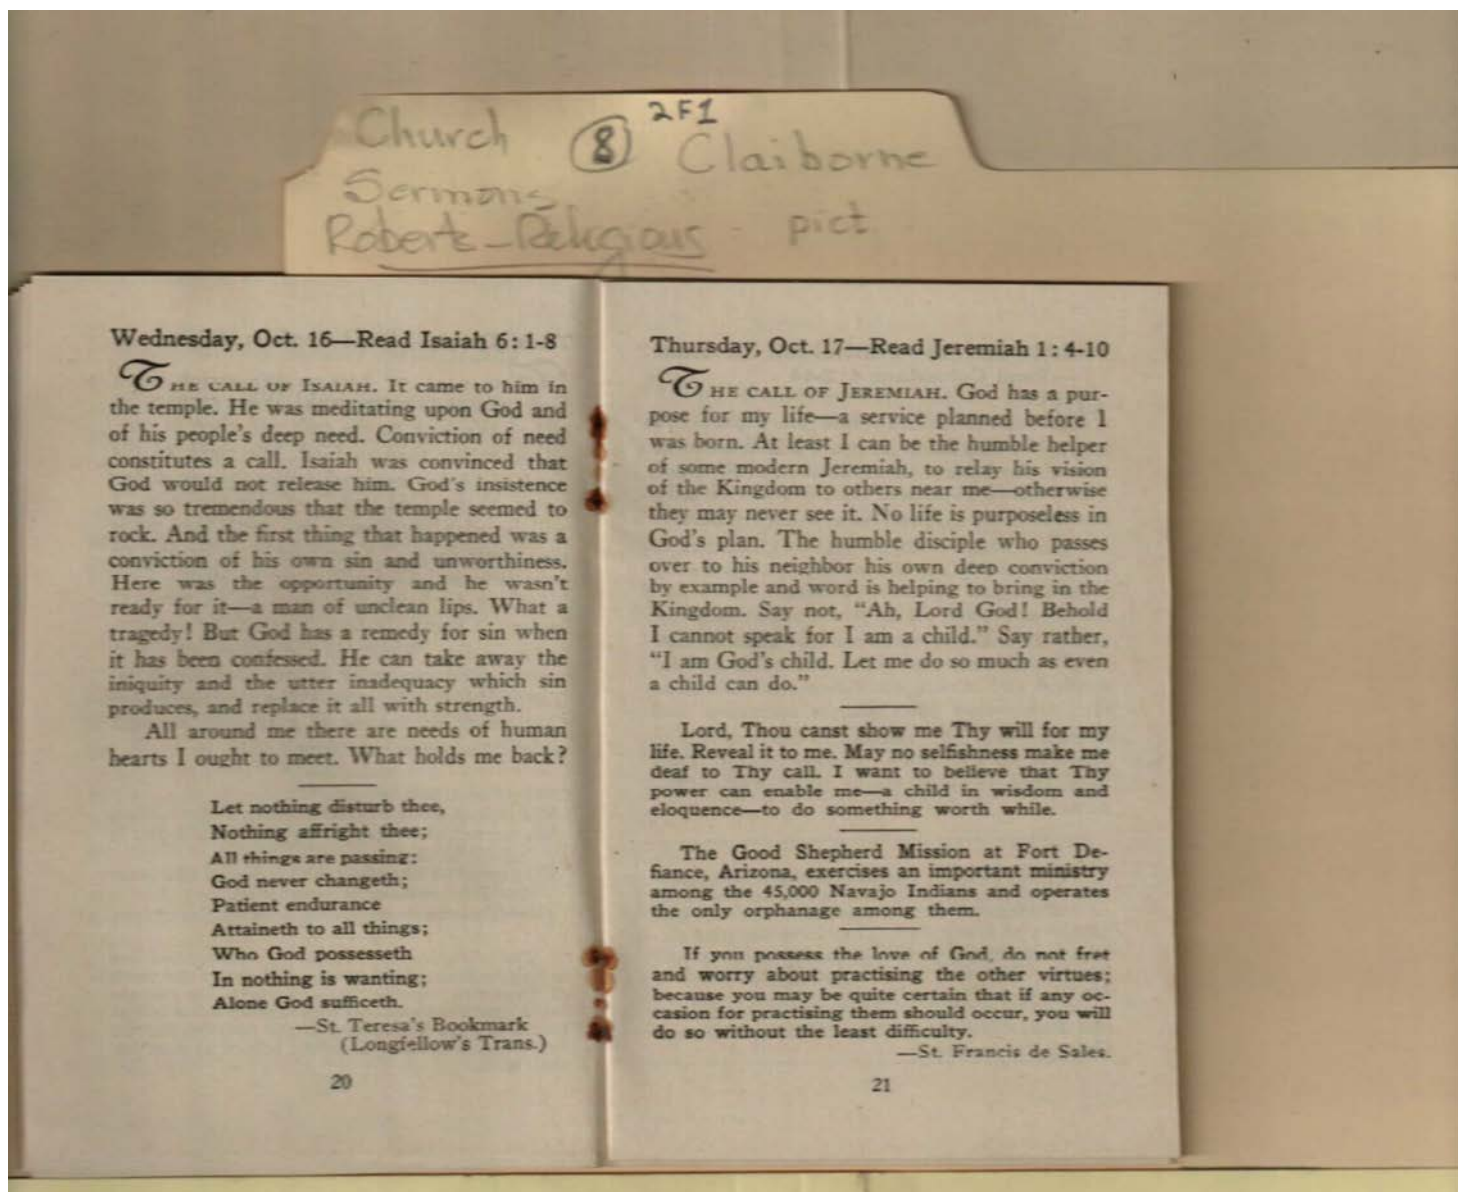 Church 8 2F1 Claiborne
Sermons
Roberts-Religious - pict
Wednesday, Oct. 16—Read Isaiah 6:1-8
THE CALL OF ISAIAH. It came to him in
the temple. He was meditating upon God and
of his people's deep need. Conviction of need
constitutes a call. Isaiah was convinced that
God would not release him. God's insistence
was so tremendous that the temple seemed to
rock. And the first thing that happened was a
conviction of his own sin and unworthiness.
Here was the opportunity and he wasn't
ready for it—a man of unclean lips. What a
tragedy! But God has a remedy for sin when
it has been confessed. He can take away the
iniquity and the utter inadequacy which sin
produces, and replace it all with strength.
All around me there are needs of human
hearts I ought to meet. What holds me back?
Let nothing disturb thee,
Nothing affright thee;
All things are passing:
God never changeth;
Patient endurance
Attaineth to all things;
Who God possesseth
In nothing is wanting;
Alone God sufficeth.
—St. Teresa's Bookmark
(Longfellow's Trans.)
20
Thursday, Oct. 17—Read Jeremiah 1:4-10
THE CALL OF JEREMIAH. God has a pur-
pose for my life—a service planned before I
was born. At least I can be the humble helper
of some modern Jeremiah, to relay his vision
of the Kingdom to others near me—otherwise
they may never see it. No life is purposeless in
God's plan. The humble disciple who passes
over to his neighbor his own deep conviction
by example and word is helping to bring in the
Kingdom. Say not, "Ah, Lord God! Behold
I cannot speak for I am a child." Say rather,
"I am God's child. Let me do so much as even
a child can do."
Lord, Thou canst show me Thy will for my
life. Reveal it to me. May no selfishness make me
deaf to Thy call. I want to believe that Thy
power can enable me—a child in wisdom and
eloquence—to do something worth while.
The Good Shepherd Mission at Fort De-
fiance, Arizona, exercises an important ministry
among the 45,000 Navajo Indians and operates
the only orphanage among them.
If you possess the love of God, do not fret
and worry about practising the other virtues;
because you may be quite certain that if any oc-
casion for practising them should occur, you will
do so without the least difficulty.
—St. Francis de Sales.
21